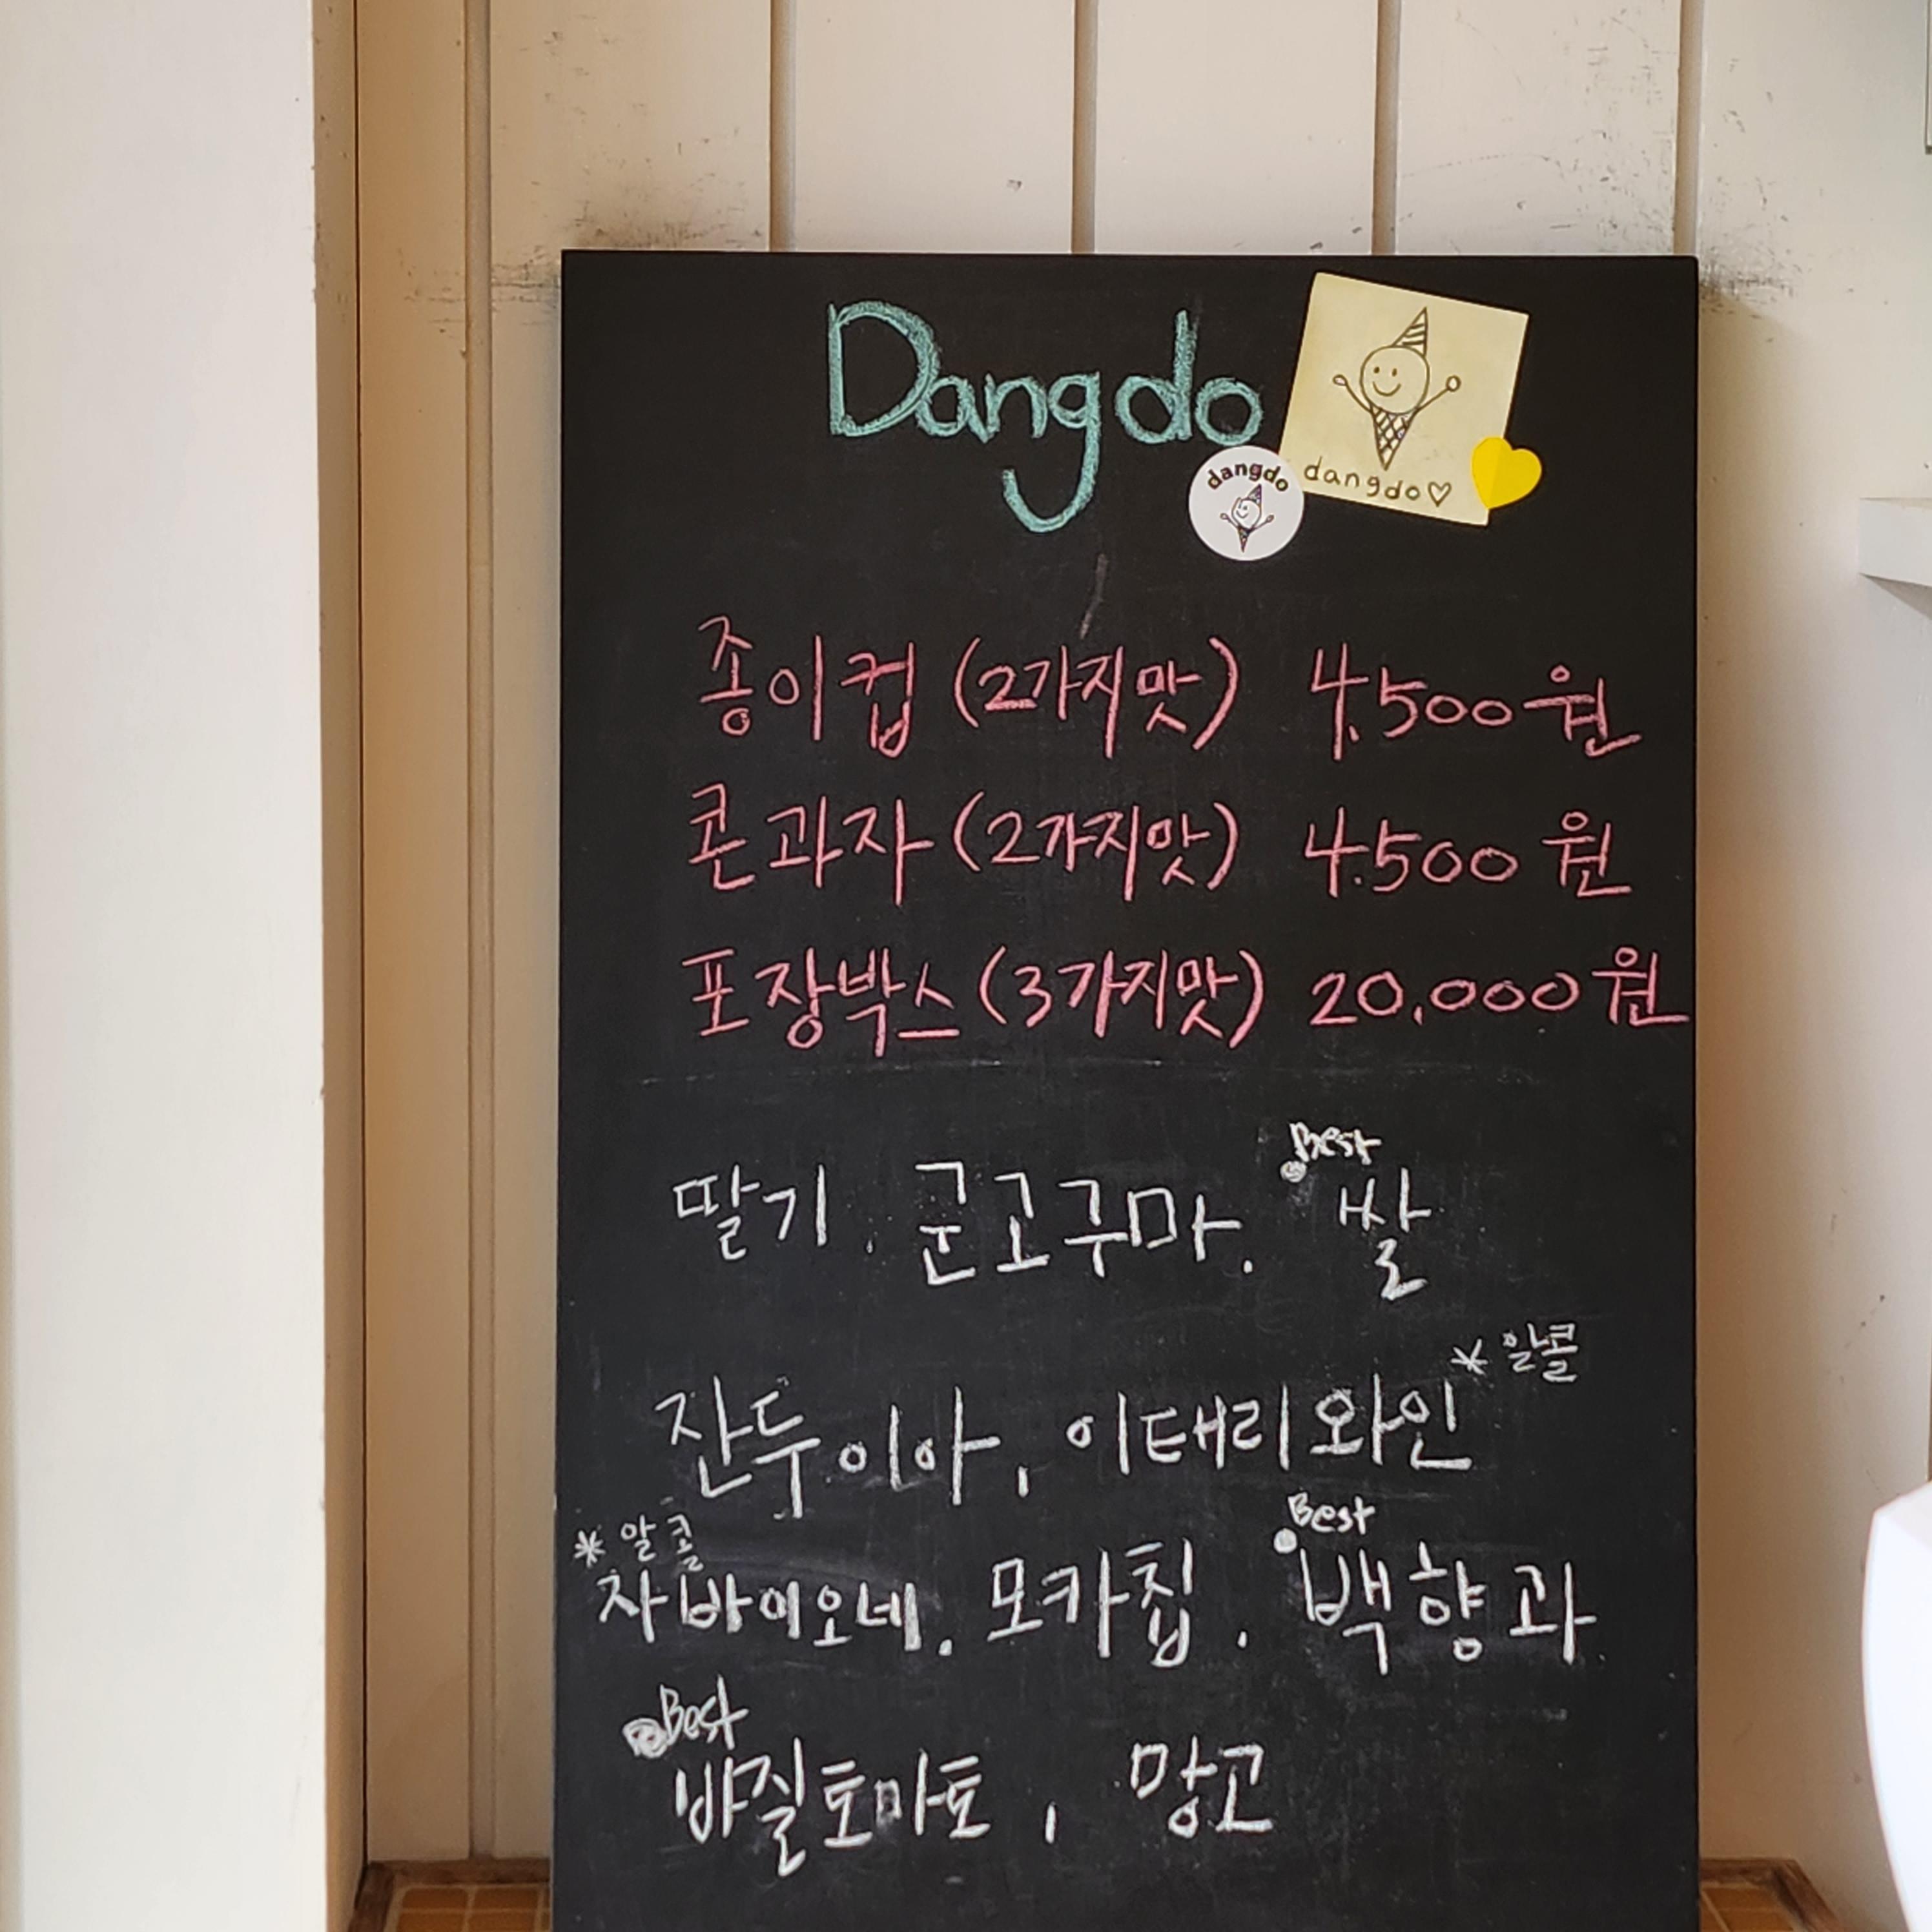 Dangdo
dangdo♡
dangdo
종이컵 (2가지맛) 4,500원
콘과자 (2가지맛) 4.500원
포장박스 (3가지맛) 20,000원
Best
딸기. 군고구마. 쌀
* 알콜
잔두이아, 이태리와인
* 알콜
Best
자바이오네. 모카칩. 백향과
Best
바질토마토, 망고